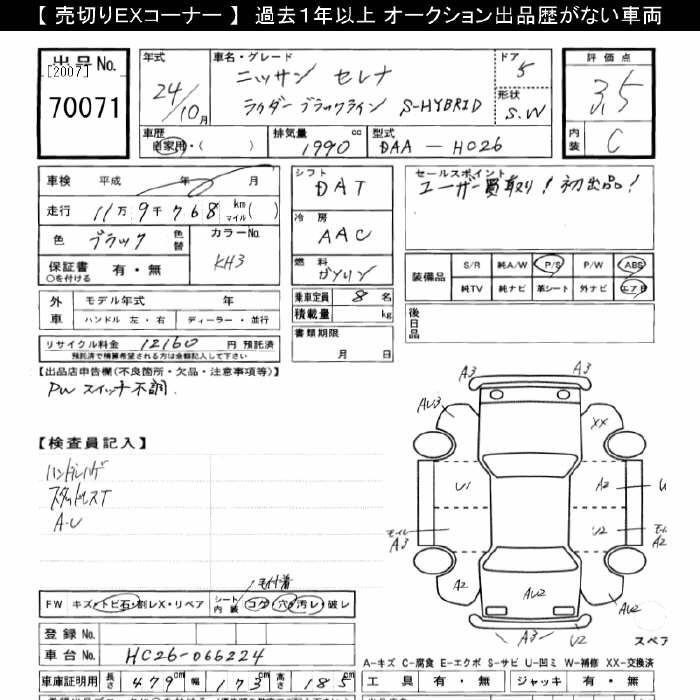 【 売切りEXコーナー 】 過去１年以上 オークション出品歴がない車両
出品No.
[2007]
70071
年式
24/10月
車名・グレード
ニッサン セレナ
ライダー ブラックライン S-HYBRID
ドア
5
形状
S.W
評価点
3.5
内装
C
車歴
自家用・( )
排気量
1990 cc
型式
DAA - HC26
車検 平成 年 月
走行 11万9千768 km マイル( )
色 ブラック 色替
カラーNo.
KH3
保証書 ○を付ける 有・無
シフト
DAT
冷房
AAC
燃料
ガソリン
セールスポイント
ユーザー買取り! 初出品!
装備品
S/R 純A/W P/S P/W ABS
純TV 純ナビ 革シート 外ナビ エアB
外車
モデル年式 年
ハンドル 左・右 ディーラー・並行
乗車定員 8 名
積載量 kg
後日品
リサイクル料金 12160 円 預託済
預託済で精算希望される方は金額記入して下さい
書類期限
月 日
【出品店申告欄(不良箇所・欠品・注意事項等)】
PW スイッチ不調.
【検査員記入】
ハンドルハゲ
スタッドレスT
A-U
A3
A3
AU3
XX
U1
A2
U
モイル
A3
U2
モー
A2
A2
AU2
AU2
A3
U2
スペア
モイル着
FW キズ・トビ石・割レX・リペア シート内装 コゲ・穴・汚レ・破レ
登録No.
車台No. HC26-066224
A-キズ C-腐食 E-エクボ S-サビ U-凹ミ W-補修 XX-交換済
車庫証明用 長さ 479 cm 幅 173 cm 高さ 185 cm
工具 有・無 ジャッキ 有・無